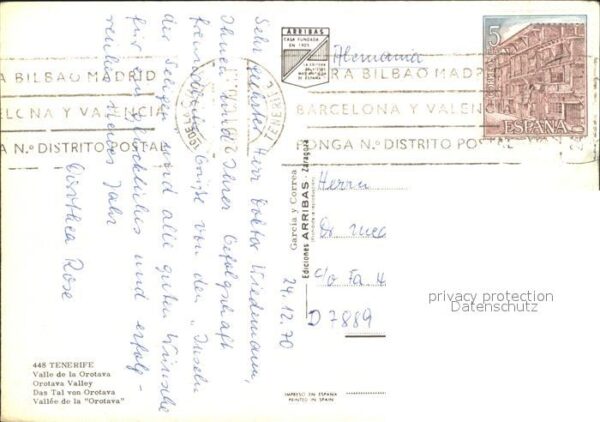 Sehr geehrter Herr Doktor Wiedemann,
Ihnen und Ihrer Gefolgschaft
freundliche Grüße von den „Inseln
der Seligen" und alle guten Wünsche
für ein glückliches und erfolg-
reiches Neues Jahr
Dorothea Rose
24.12.70
ARRIBAS
CASA FUNDADA
EN 1905
Alemania
5
ESPAÑA
RA BILBAO MADRID
ELONA Y VALENCIA
ONGA N.º DISTRITO POSTAL
RA BILBAO MADRI
BARCELONA Y VALENC
PONGA N.º DISTRITO POSTAL
García y Correa
Ediciones ARRIBAS - Zaragoza
Herrn
Dr.
c/o Fa.
D 7889
privacy protection
Datenschutz
448 TENERIFE
Valle de la Orotava
Orotava Valley
Das Tal von Orotava
Vallée de la "Orotava"
IMPRESO EN ESPAÑA
PRINTED IN SPAIN